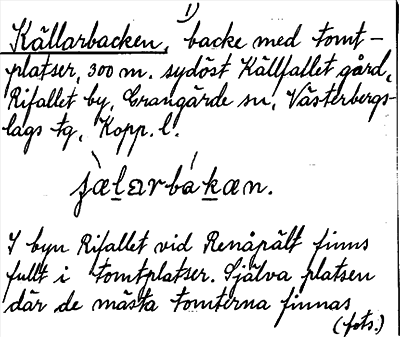 1)
Källarbacken, backe med tomt-
platser, 300 m. sydöst Källfallet gård,
Rifallet by, Grangärde sn, Västerbergs-
lags tg, Kopp. l.
I byn Rifallet vid Renåpält finns
fullt i tomtplatser. Själva platsen
där de mästa tomterna finnas
(forts.)